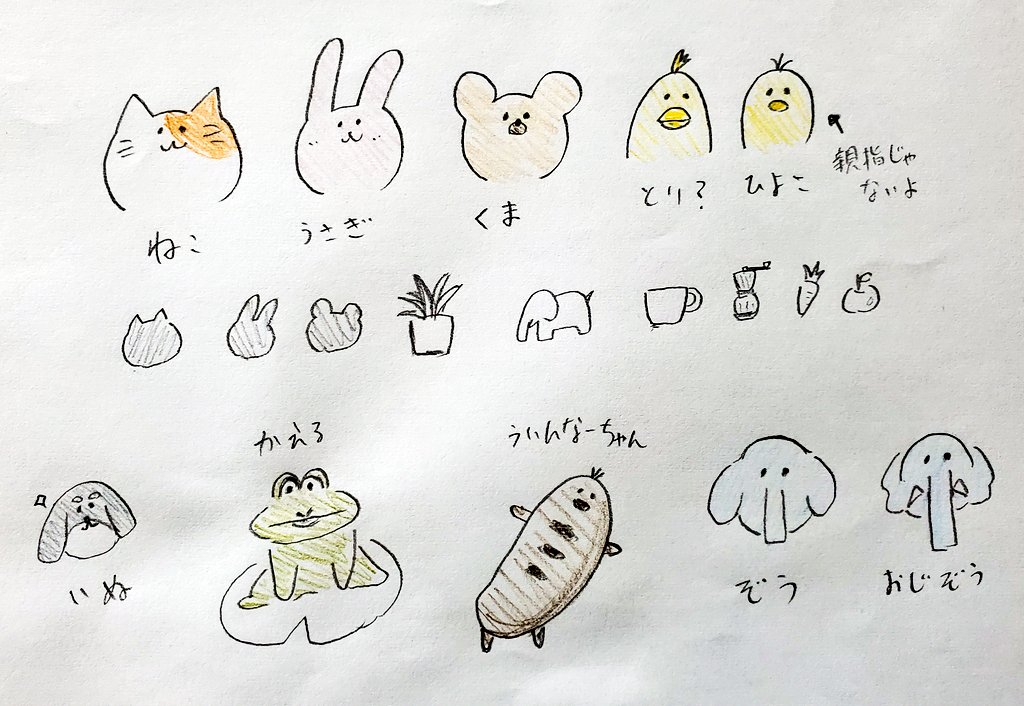 ねこ
うさぎ
くま
とり?
ひよこ
親指じゃ
ないよ
かえる
ういんなーちゃん
いぬ
ぞう
おじぞう